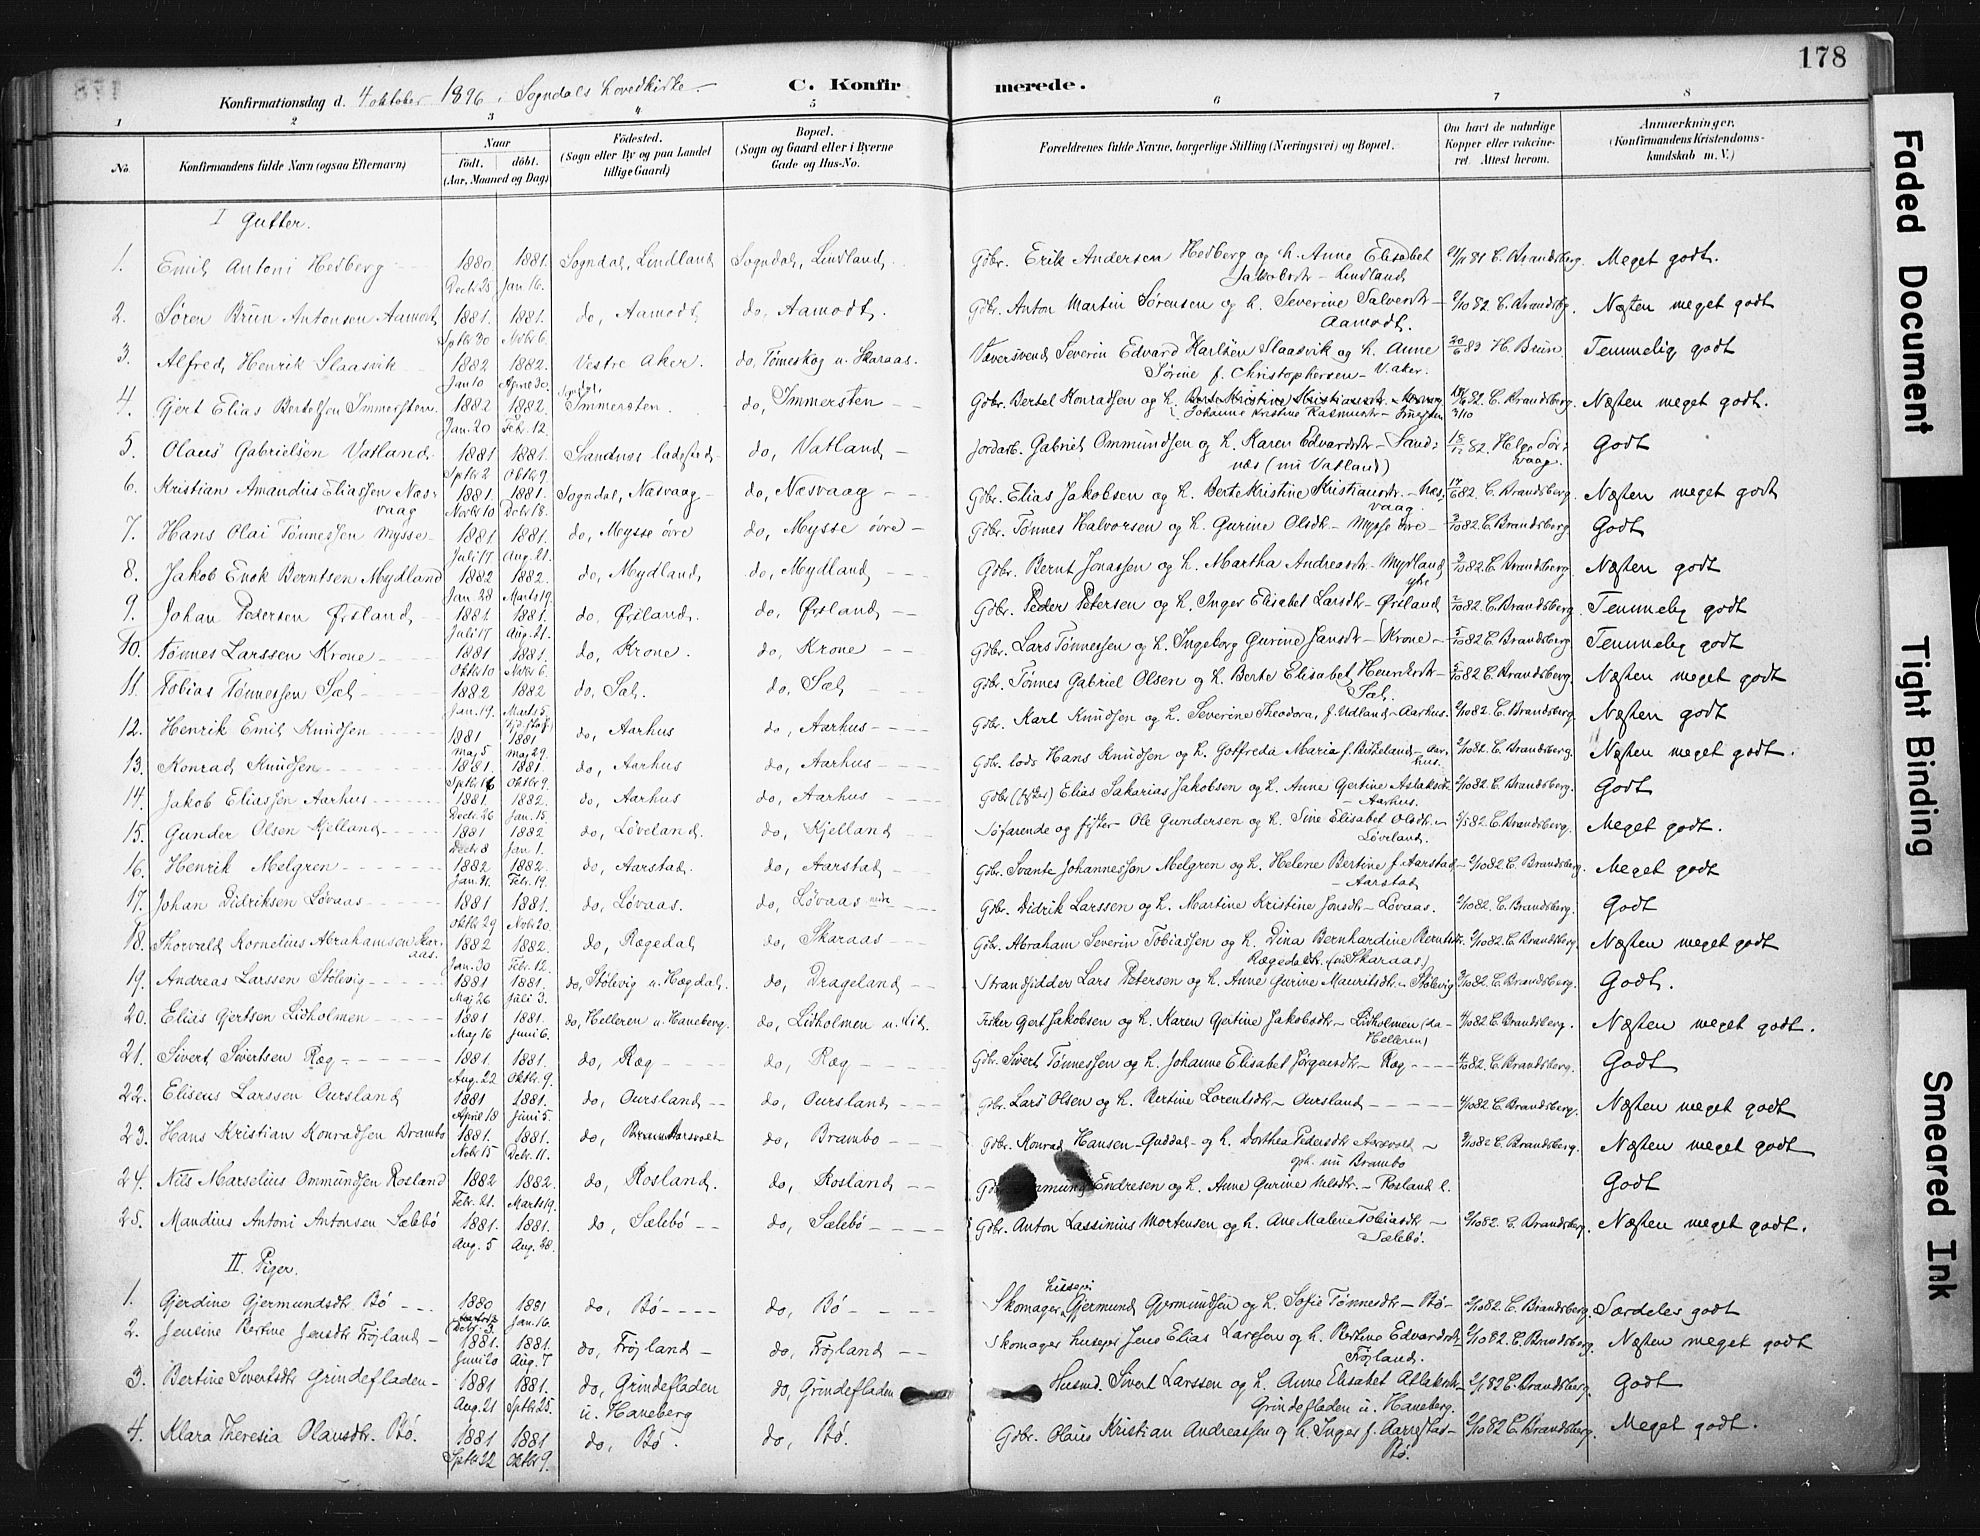 178
Konfirmationsdag d. 4 oktober 1896 i Sogndals hovedkirke.
C. Konfirmerede.
1 2 3 4 5 6 7 8
No. Konfirmandens fulde Navn (ogsaa Efternavn) Naar født, døbt. (Aar, Maaned og Dag) Fødested. (Sogn eller By og paa Landet tillige Gaard) Bopæl. (Sogn og Gaard eller i Byerne Gade og Hus-No. Forældrenes fulde Navne, borgerlige Stilling (Næringsvei) og Bopæl. Om havt de naturlige Kopper eller vakcineret. Attest herom. Anmærkninger. (Konfirmandens Kristendomskundskab m. V.)
I Gutter.
1. Emil Antoni Hedberg 1880 Decbr 25 1881. Jan. 16. Sogndal, Lindland Sogndal, Lindland Gdbr. Erik Andersen Hedberg og h. Anne Elisabet Jakobsdtr - Lindland C. Brandsberg. Meget godt.
2. Søren Brun Antonsen Aamodt 1881. Sptbr 30 1881. Novbr 6. do, Aamodt do, Aamodt. Gdbr. Anton Martin Sørensen og h. Severine Salvesdtr - Aamodt. 2/10 82 C. Brandsbg. Næsten meget godt
3. Alfred Henrik Slaasvik 1882 Jan 10 1882. April 30. Vestre Aker. do, Tømeskog u. Skaraas. Væversvend Severin Edvard Karlsen Slaasvik og h. Anne Sørine f. Christophersen - V. aker. 20/6 83 H. Brun Temmelig godt
4. Gjert Elias Bertelsen Immersten 1882 Jan. 20 1882. Feb. 12. Sogndal. Immersten. do, Immersten Gdbr. Bertel Konradsen og h. Berte Kristine Kristiansdtr - Næsvaag Johanne Kristine Rasmusdtr - Imersten 3/10 82. C. Brandsberg. Næsten meget godt.
5. Olaus Gabrielsen Vatland 1881 Sptbr 2 1881. Oktbr 9. Sandnes ladested do, Vatland Jordarb. Gabriel Ommundsen og h. Karen Edvardsdtr - Sandnæs (nu Vatland) 82. Helge Sørvaag. Godt
6. Kristian Amandus Eliassen Næsvaag 1881. Novbr 10 1881. Decbr 18. Sogndal, Næsvaag do, Næsvaag Gdbr. Elias Jakobsen og h. Berte Kristine Kristiansdtr - Næsvaag. 82. C. Brandsberg. Næsten meget godt
7. Hans Olai Tønnessen Mysse 1881 Juli 17 1881. Aug. 21. do, Mysse øvre do, Mysse øvre Gdbr. Tønnes Halvorsen og h. Gurine Olsdtr - Mysse øvre 3/10 82. C. Brandsberg Godt
8. Jakob Enok Berntsen Mydland 1882 Jan. 28 1882. Marts 19. do, Mydland, do, Mydland Gdbr. Bernt Jonassen og h. Martha Andreasdtr - Mydland yhe 3/10 82. C. Brandsberg. Næsten godt
9. Johan Pedersen Ørsland 1881 Juli 17 1881. Aug. 21. do, Ørsland. do, Ørsland Gdbr. Peder Petersen og h. Inger Elisabet Larsdtr - Ørsland 2/10 82. C. Brandsberg. Temmelig godt
10. Tønnes Larssen Krone 1881 Oktbr 10 1881. Novbr 6. do, Krone. do, Krone Gdbr. Lars Tønnessen og h. Ingeborg Gurine Jansdtr - Krone 5/10 82 C. Brandsberg Temmelig godt
11. Tobias Tønnessen Sæl 1882 Jan. 19. 1882 Marts 5. do, Sæl. do, Sæl Gdbr. Tønnes Gabriel Olsen og h. Berte Elisabet Henriksdtr - Sæl. 5/10 82 C. Brandsberg. Næsten meget godt
12. Henrik Emil Knudsen 1881 Maj 5 1881 Maj 29. do, Aarhus do, Aarhus Gdbr. Karl Knudsen og h. Severine Theodora, f. Udland - Aarhus. 2/10 82. C. Brandsberg. Næsten godt
13. Konrad Knudsen 1881. Sptbr 16 1881 Oktbr 9. do, Aarhus do, Aarhus Gdbr. lods Hans Knudsen og h. Gotfreda Maria f. Birkeland - Aarhus. 2/10 82. C. Brandsberg. Næsten meget godt.
14. Jakob Eliassen Aarhus 1881. Decbr. 26 1882. Jan. 15. do, Aarhus do, Aarhus Gdbr (fisker) Elias Sakarias Jakobsen og h. Anne Gertine Aslaksdtr - Aarhus. 2/10 82 C. Brandsberg. Godt
15. Gunder Olsen Kjelland 1881 Decbr 8 1882 Jan 1. do, Løveland. do, Kjelland Søfarende og fisker - Ole Gundersen og h. Sine Elisabet Olsdtr. - Løveland. 82 C. Brandsberg. Meget godt.
16. Henrik Melgren 1882 Jan. 21. 1882. Febr. 19. do, Aarstad. do, Aarstad Gdbr. Svante Johannessen Melgren og h. Helene Bertine f. Aarstad - Aarstad 2/10 82. C. Brandsberg. Meget godt
17. Johan Didriksen Løvaas 1881 Oktbr 29 1881. Novbr 20. do, Løvaas. do, Løvaas nedre Gdbr. Didrik Larssen og h. Martine Kristine Jonsdtr - Løvaas. 2/10 82. C. Brandsberg. Godt
18. Thorvald Kornelius Abrahamsen Skaraas. 1882 Jan. 30 1882. Febr. 12. do, Rægedal do, Skaraas Gdbr. Abraham Severin Tobiassen og h. Dina Bernhardine Berntsdtr. Rægedal (nu Skaraas) 2/10 82. C. Brandsberg. Næsten meget godt
19. Andreas Larssen Stølsvig 1881 Maj 26 1881. Juli 3. do, Stølsvig u. Hægdal. do, Drageland Strandsidder Lars Petersen og h. Anne Gurine Mauritsdtr - Stølsvig 3/10 82. C. Brandsberg. Godt.
20. Elias Gjertsen Lidholmen 1881 Maj 16 1881. Juni 6. do, Helleren u. Haneberg. do, Lidholmen u. Fisker Gert Jakobsen og h. Karen Gertine Jakobsdtr - Lidholmen (da Helleren) 4/10 82. C. Brandsberg. Næsten meget godt.
21. Sivert Sivertsen Ræg 1881. Aug. 22 1881. Oktbr. 9. do, Ræg do, Ræg Gdbr. Sivert Tønnessen og h. Johanne Elisabet Jørgensdtr - Ræg 4/10 82. C. Brandsberg. Godt
22. Eliseus Larssen Oursland 1881 April 18 1881. Juni 5. do, Oursland do, Oursland Gdbr. Lars Olsen og h. Bertine Lorentsdtr - Oursland 4/10 82. C. Brandsberg. Næsten meget godt
23. Hans Kristian Konradsen Brambo 1881. Novbr 15 1881. Decbr. 11. do, Aarsvold do, Brambo Gdbr. Konrad Hansen - Guddal - og h. Dorthea Pedersdtr Aarsvold - oph. nu Brambo 3/10 82 C. Brandsberg. Næsten meget godt
24. Nils Marselius Ommundsen Rosland 1882 Febr. 21. 1882. Marts 19. do, Rosland. do, Rosland Ommund Endresen og h. Anne Gurine Nilsdtr - Rosland Godt
25. Mandius Antoni Antonsen Sælebø 1881. Aug. 5 1881. Aug. 28. do, Sælebø do, Sælebø Gdbr. Anton Lassinius Mortensen og h. Ane Malene Tobiasdtr - Sælebø. 2/10 82. C. Brandsberg. Næsten meget godt.
II. Piger.
1. Gjerdine Gjermundsdtr Bø 1880 Decbr. 3. 1881 Jan. 16. do, Bø do, Bø Skomager, husejer Gjermund Gjermundsen og h. Sofie Tønnesdtr - Bø 2/10 82. C. Brandsberg. Særdeles godt
2. Jensine Bertine Jensdtr Frøjland 1881. Juni 20 1881. Aug. 7 do, Frøjland do, Frøjland Skomager husejer Jens Elias Larssen og h. Bertine Edvardsdtr Frøjland. 2/10 82. C. Brandsberg. Næsten meget godt
3. Bertine Sivertsdtr Grindefladen 1881 Aug. 21 1881. Sptbr 25. do, Grindefladen u. Haneberg do, Grindefladen Husmd. Sivert Larssen og h. Anne Elisabet Atlaksdtr Grindefladen u. Haneberg. 82 C. Brandsberg. Godt
4. Klara Theresia Olausdtr. Bø. 1881 Sptbr 22 1881 Oktbr 9. do, Bø. do, Bø. Gdbr. Olaus Kristian Andreassen og h. Inger f. Aarrestad - Bø. 2/10 82 C. Brandsberg. Meget godt.
Faded Document
Tight Binding
Smeared Ink